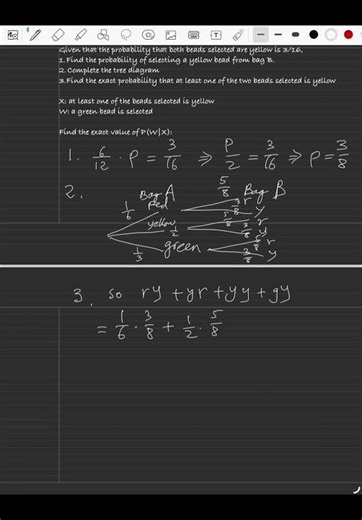 Given that the probability that both beads selected are yellow is 3/16,
1. Find the probability of selecting a yellow bead from bag B.
2. Complete the tree diagram
3. Find the exact probability that at least one of the two beads selected is yellow
X: at least one of the beads selected is yellow
W: a green bead is selected
Find the exact value of P(W|X):
1. 6/12 · P = 3/16 ⇒ P/2 = 3/16 ⇒ P = 3/8
2. Bag A 5/8 Bag B
1/6 Red 3/8 r
5/8 y
yellow 1/2 5/8 r
3/8 y
1/3 green 5/8 r
3/8 y
3. so ry + yr + yy + gy
= 1/6 · 3/8 + 1/2 · 5/8